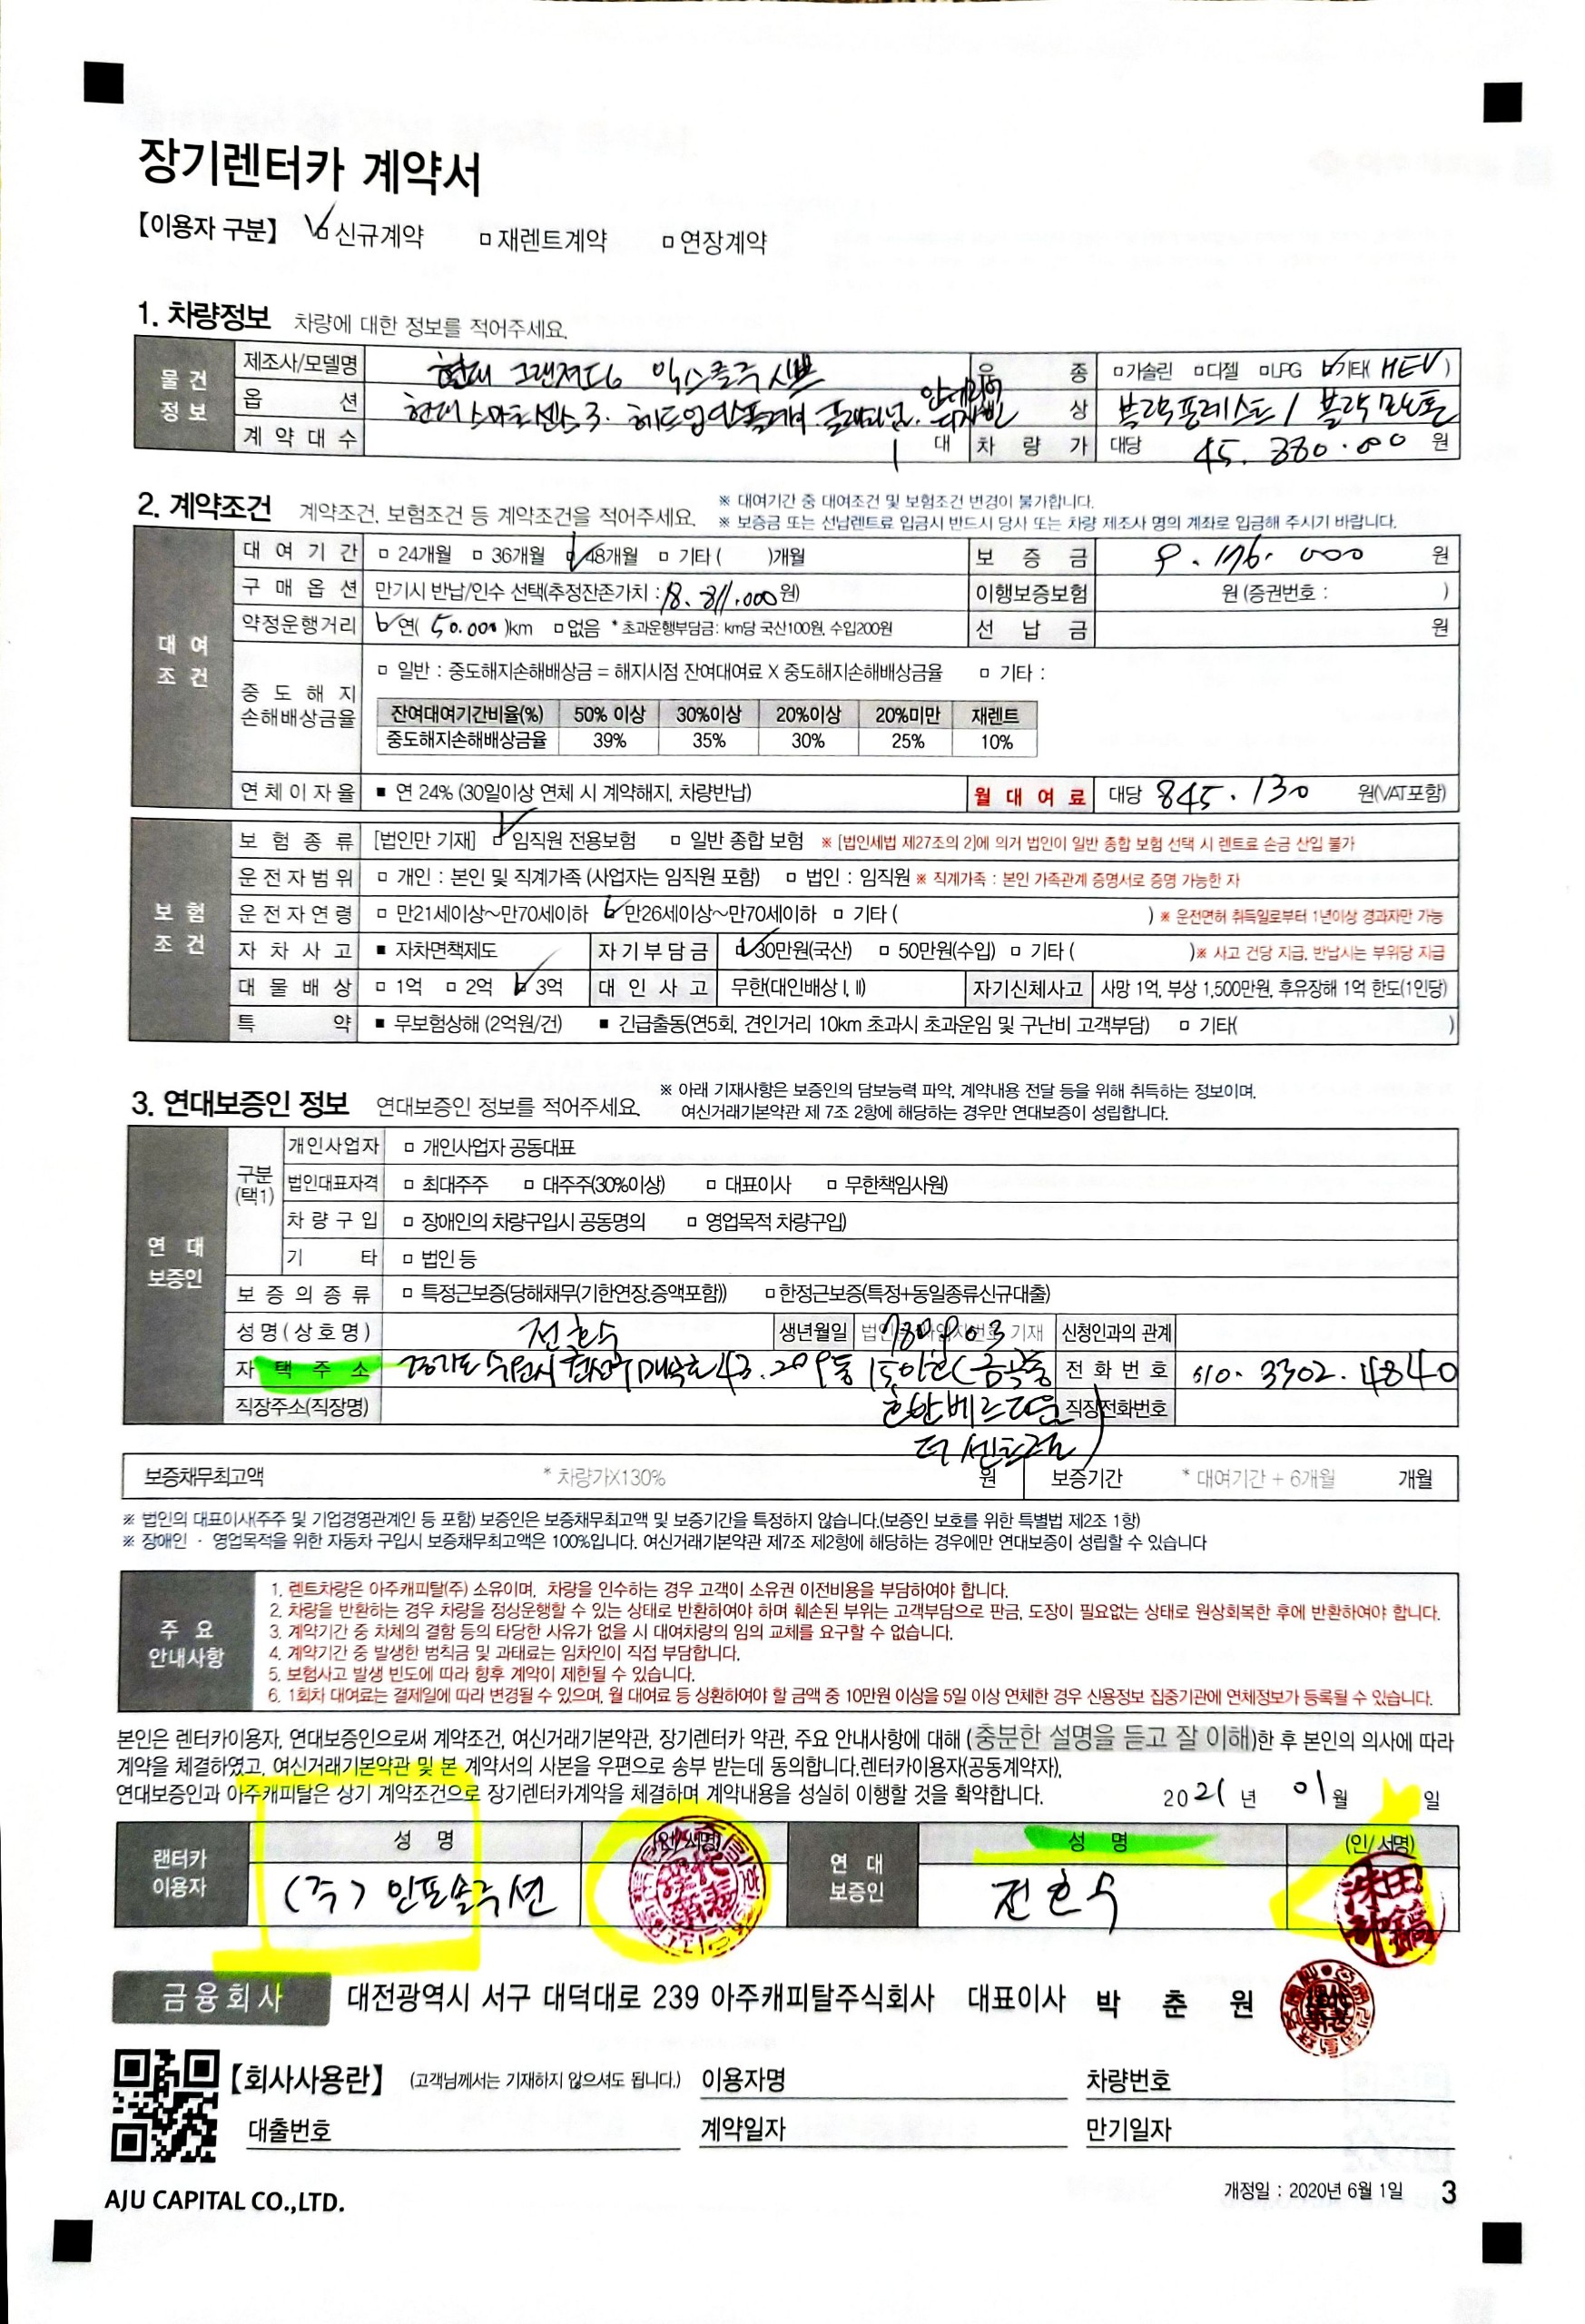 장기렌터카 계약서
【이용자 구분】 ☑ 신규계약 □ 재렌트계약 □ 연장계약
1. 차량정보 차량에 대한 정보를 적어주세요.
물건정보
제조사/모델명 현대 그랜져IG 익스클루시브 유종 □가솔린 □디젤 □LPG ☑기타( HEV )
옵션 현대스마트센스3. 헤드업디스플레이. 플래티넘. 인테리어 디자인 색상 블랙포레스트 / 블랙모노톤
계약대수 1 대 차량가 대당 45.880.000 원
2. 계약조건 계약조건, 보험조건 등 계약조건을 적어주세요.
※ 대여기간 중 대여조건 및 보험조건 변경이 불가합니다.
※ 보증금 또는 선납렌트료 입금시 반드시 당사 또는 차량 제조사 명의 계좌로 입금해 주시기 바랍니다.
대여조건
대여기간 □ 24개월 □ 36개월 ☑ 48개월 □ 기타 ( )개월 보증금 9.176.000 원
구매옵션 만기시 반납/인수 선택(추정잔존가치 : 18.811.000 원) 이행보증보험 원 (증권번호 : )
약정운행거리 ☑ 연( 50.000 )km □없음 * 초과운행부담금: km당 국산100원, 수입200원 선납금 원
중도해지 손해배상금율
□ 일반 : 중도해지손해배상금 = 해지시점 잔여대여료 X 중도해지손해배상금율 □ 기타 :
잔여대여기간비율(%) 50% 이상 30%이상 20%이상 20%미만 재렌트
중도해지손해배상금율 39% 35% 30% 25% 10%
연체이자율 ■ 연 24% (30일이상 연체 시 계약해지, 차량반납) 월대여료 대당 845.130 원(VAT포함)
보험조건
보험종류 [법인만 기재] ☑ 임직원 전용보험 □ 일반 종합 보험 ※ [법인세법 제27조의 2]에 의거 법인이 일반 종합 보험 선택 시 렌트료 손금 산입 불가
운전자범위 □ 개인 : 본인 및 직계가족 (사업자는 임직원 포함) □ 법인 : 임직원 ※ 직계가족 : 본인 가족관계 증명서로 증명 가능한 자
운전자연령 □ 만21세이상~만70세이하 ☑ 만26세이상~만70세이하 □ 기타 ( ) ※ 운전면허 취득일로부터 1년이상 경과자만 가능
자차사고 ■ 자차면책제도 자기부담금 ☑ 30만원(국산) □ 50만원(수입) □ 기타 ( )※ 사고 건당 지급, 반납시는 부위당 지급
대물배상 □ 1억 □ 2억 ☑ 3억 대인사고 무한(대인배상 I, II) 자기신체사고 사망 1억, 부상 1,500만원, 후유장해 1억 한도(1인당)
특약 ■ 무보험상해 (2억원/건) ■ 긴급출동(연5회, 견인거리 10km 초과시 초과운임 및 구난비 고객부담) □ 기타( )
3. 연대보증인 정보 연대보증인 정보를 적어주세요.
※ 아래 기재사항은 보증인의 담보능력 파악, 계약내용 전달 등을 위해 취득하는 정보이며,
여신거래기본약관 제 7조 2항에 해당하는 경우만 연대보증이 성립합니다.
연대보증인
구분(택1)
개인사업자 □ 개인사업자 공동대표
법인대표자격 □ 최대주주 □ 대주주(30%이상) □ 대표이사 □ 무한책임사원)
차량구입 □ 장애인의 차량구입시 공동명의 □ 영업목적 차량구입)
기타 □ 법인 등
보증의종류 □ 특정근보증(당해채무(기한연장.증액포함)) □한정근보증(특정+동일종류신규대출)
성명(상호명) 전호수 생년월일 기재 신청인과의 관계
자택주소 경기도 수원시 권선구 43. 209동 1501호 (금곡동 호반베르디움 더센트럴) 전화번호 010. 3302. 4840
직장주소(직장명) 직장전화번호
보증채무최고액 * 차량가X130% 원 보증기간 * 대여기간 + 6개월 개월
※ 법인의 대표이사(주주 및 기업경영관계인 등 포함) 보증인은 보증채무최고액 및 보증기간을 특정하지 않습니다.(보증인 보호를 위한 특별법 제2조 1항)
※ 장애인 · 영업목적을 위한 자동차 구입시 보증채무최고액은 100%입니다. 여신거래기본약관 제7조 제2항에 해당하는 경우에만 연대보증이 성립할 수 있습니다
주요 안내사항
1. 렌트차량은 아주캐피탈(주) 소유이며, 차량을 인수하는 경우 고객이 소유권 이전비용을 부담하여야 합니다.
2. 차량을 반환하는 경우 차량을 정상운행할 수 있는 상태로 반환하여야 하며 훼손된 부위는 고객부담으로 판금, 도장이 필요없는 상태로 원상회복한 후에 반환하여야 합니다.
3. 계약기간 중 차체의 결함 등의 타당한 사유가 없을 시 대여차량의 임의 교체를 요구할 수 없습니다.
4. 계약기간 중 발생한 범칙금 및 과태료는 임차인이 직접 부담합니다.
5. 보험사고 발생 빈도에 따라 향후 계약이 제한될 수 있습니다.
6. 1회차 대여료는 결제일에 따라 변경될 수 있으며, 월 대여료 등 상환하여야 할 금액 중 10만원 이상을 5일 이상 연체한 경우 신용정보 집중기관에 연체정보가 등록될 수 있습니다.
본인은 렌터카이용자, 연대보증인으로써 계약조건, 여신거래기본약관, 장기렌터카 약관, 주요 안내사항에 대해 (충분한 설명을 듣고 잘 이해)한 후 본인의 의사에 따라
계약을 체결하였고, 여신거래기본약관 및 본 계약서의 사본을 우편으로 송부 받는데 동의합니다.렌터카이용자(공동계약자),
연대보증인과 아주캐피탈은 상기 계약조건으로 장기렌터카계약을 체결하며 계약내용을 성실히 이행할 것을 확약합니다. 2021 년 01 월 일
랜터카 이용자 성명 (인/서명) 연대보증인 성명 (인/서명)
(주) 인포솔루션 전호수
금융회사 대전광역시 서구 대덕대로 239 아주캐피탈주식회사 대표이사 박춘원
【회사사용란】 (고객님께서는 기재하지 않으셔도 됩니다.) 이용자명 차량번호
대출번호 계약일자 만기일자
AJU CAPITAL CO.,LTD.
개정일 : 2020년 6월 1일 3